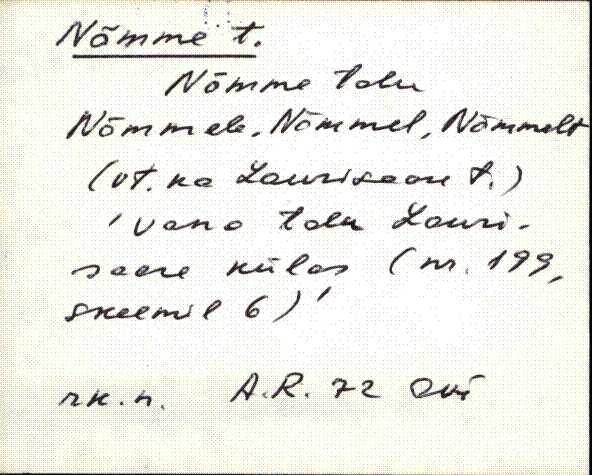 Nõmme t.
Nõmme talu
Nõmmele, Nõmmel, Nõmmelt
(vt. ka Laurisaare t.)
'vana talu Lauri-
saare külas (nr. 199,
skeemil 6)'
rk. n. A.R. 72